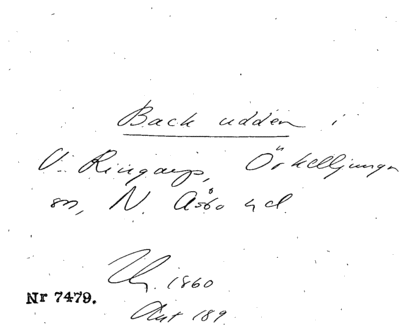 Backudden i
V. Ringarp, Örkelljunga
sn, N. Åsbo hd.
Uh. 1860
Nr 7479.
Akt 189.